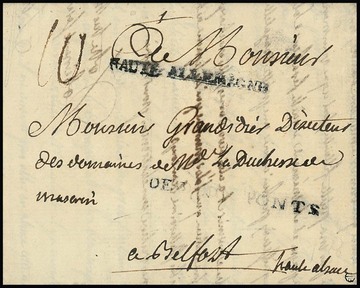 10
A Monsieur
HAUTE ALLEMAGNE
Monsieur Grandidier Directeur
des domaines de Mde La Duchesse de
mazarin
DEUX PONTS
a Belfort
haute alsace